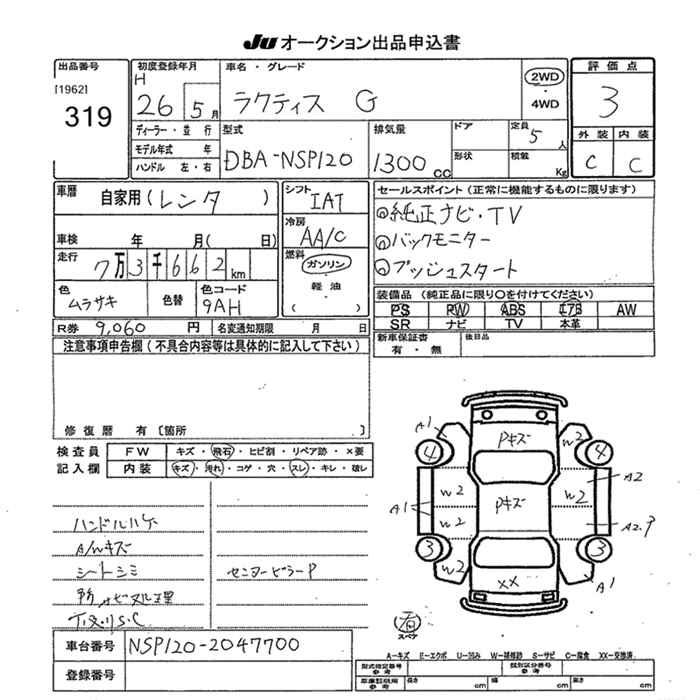 JU オークション出品申込書
出品番号
[1962]
319
初度登録年月
H
26 5月
車名・グレード
ラクティス G
2WD
・
4WD
評価点
3
外装 内装
C C
ディーラー・並行
モデル年式 年
ハンドル 左・右
型式
DBA-NSP120
排気量
1300cc
ドア
形状
定員 5人
積載 Kg
車歴
自家用(レンタ )
車検 年 月( 日)
走行 7万3千662km
色
ムラサキ
色替
色コード
9AH
シフト
IAT
冷房
AA/C
燃料
ガソリン
・
軽油
・
( )
セールスポイント(正常に機能するものに限ります)
純正ナビ・TV
バックモニター
プッシュスタート
装備品 (純正品に限り○を付けてください)
PS RW ABS エアB AW
SR ナビ TV 本革
新車保証書
有・無
後日品
R券 9,060円 名変通知期限 月 日
注意事項申告欄(不具合内容等は具体的に記入して下さい)
修復歴 有[箇所 ]
検査員
記入欄
FW キズ・飛石・ヒビ割・リペア跡・×要
内装 キズ・汚れ・コゲ・穴・スレ・キレ・破レ
ハンドルハゲ
A/Wキズ
シートシミ
センターピラーP
下廻りS・C
A1
Pキズ
W2
4
4
W2
A2
A1
W2
Pキズ
W2
W2
A2.P
3
3
W2
XX
A1
有
スペア
A-キズ E-エクボ U-凹み W-補修跡 S-サビ C-腐食 XX-交換済
車台番号 NSP120-2047700
登録番号
型式指定番号
参考
類別区分番号
参考
車庫証明用
参考
長さ cm 幅 cm 高さ cm